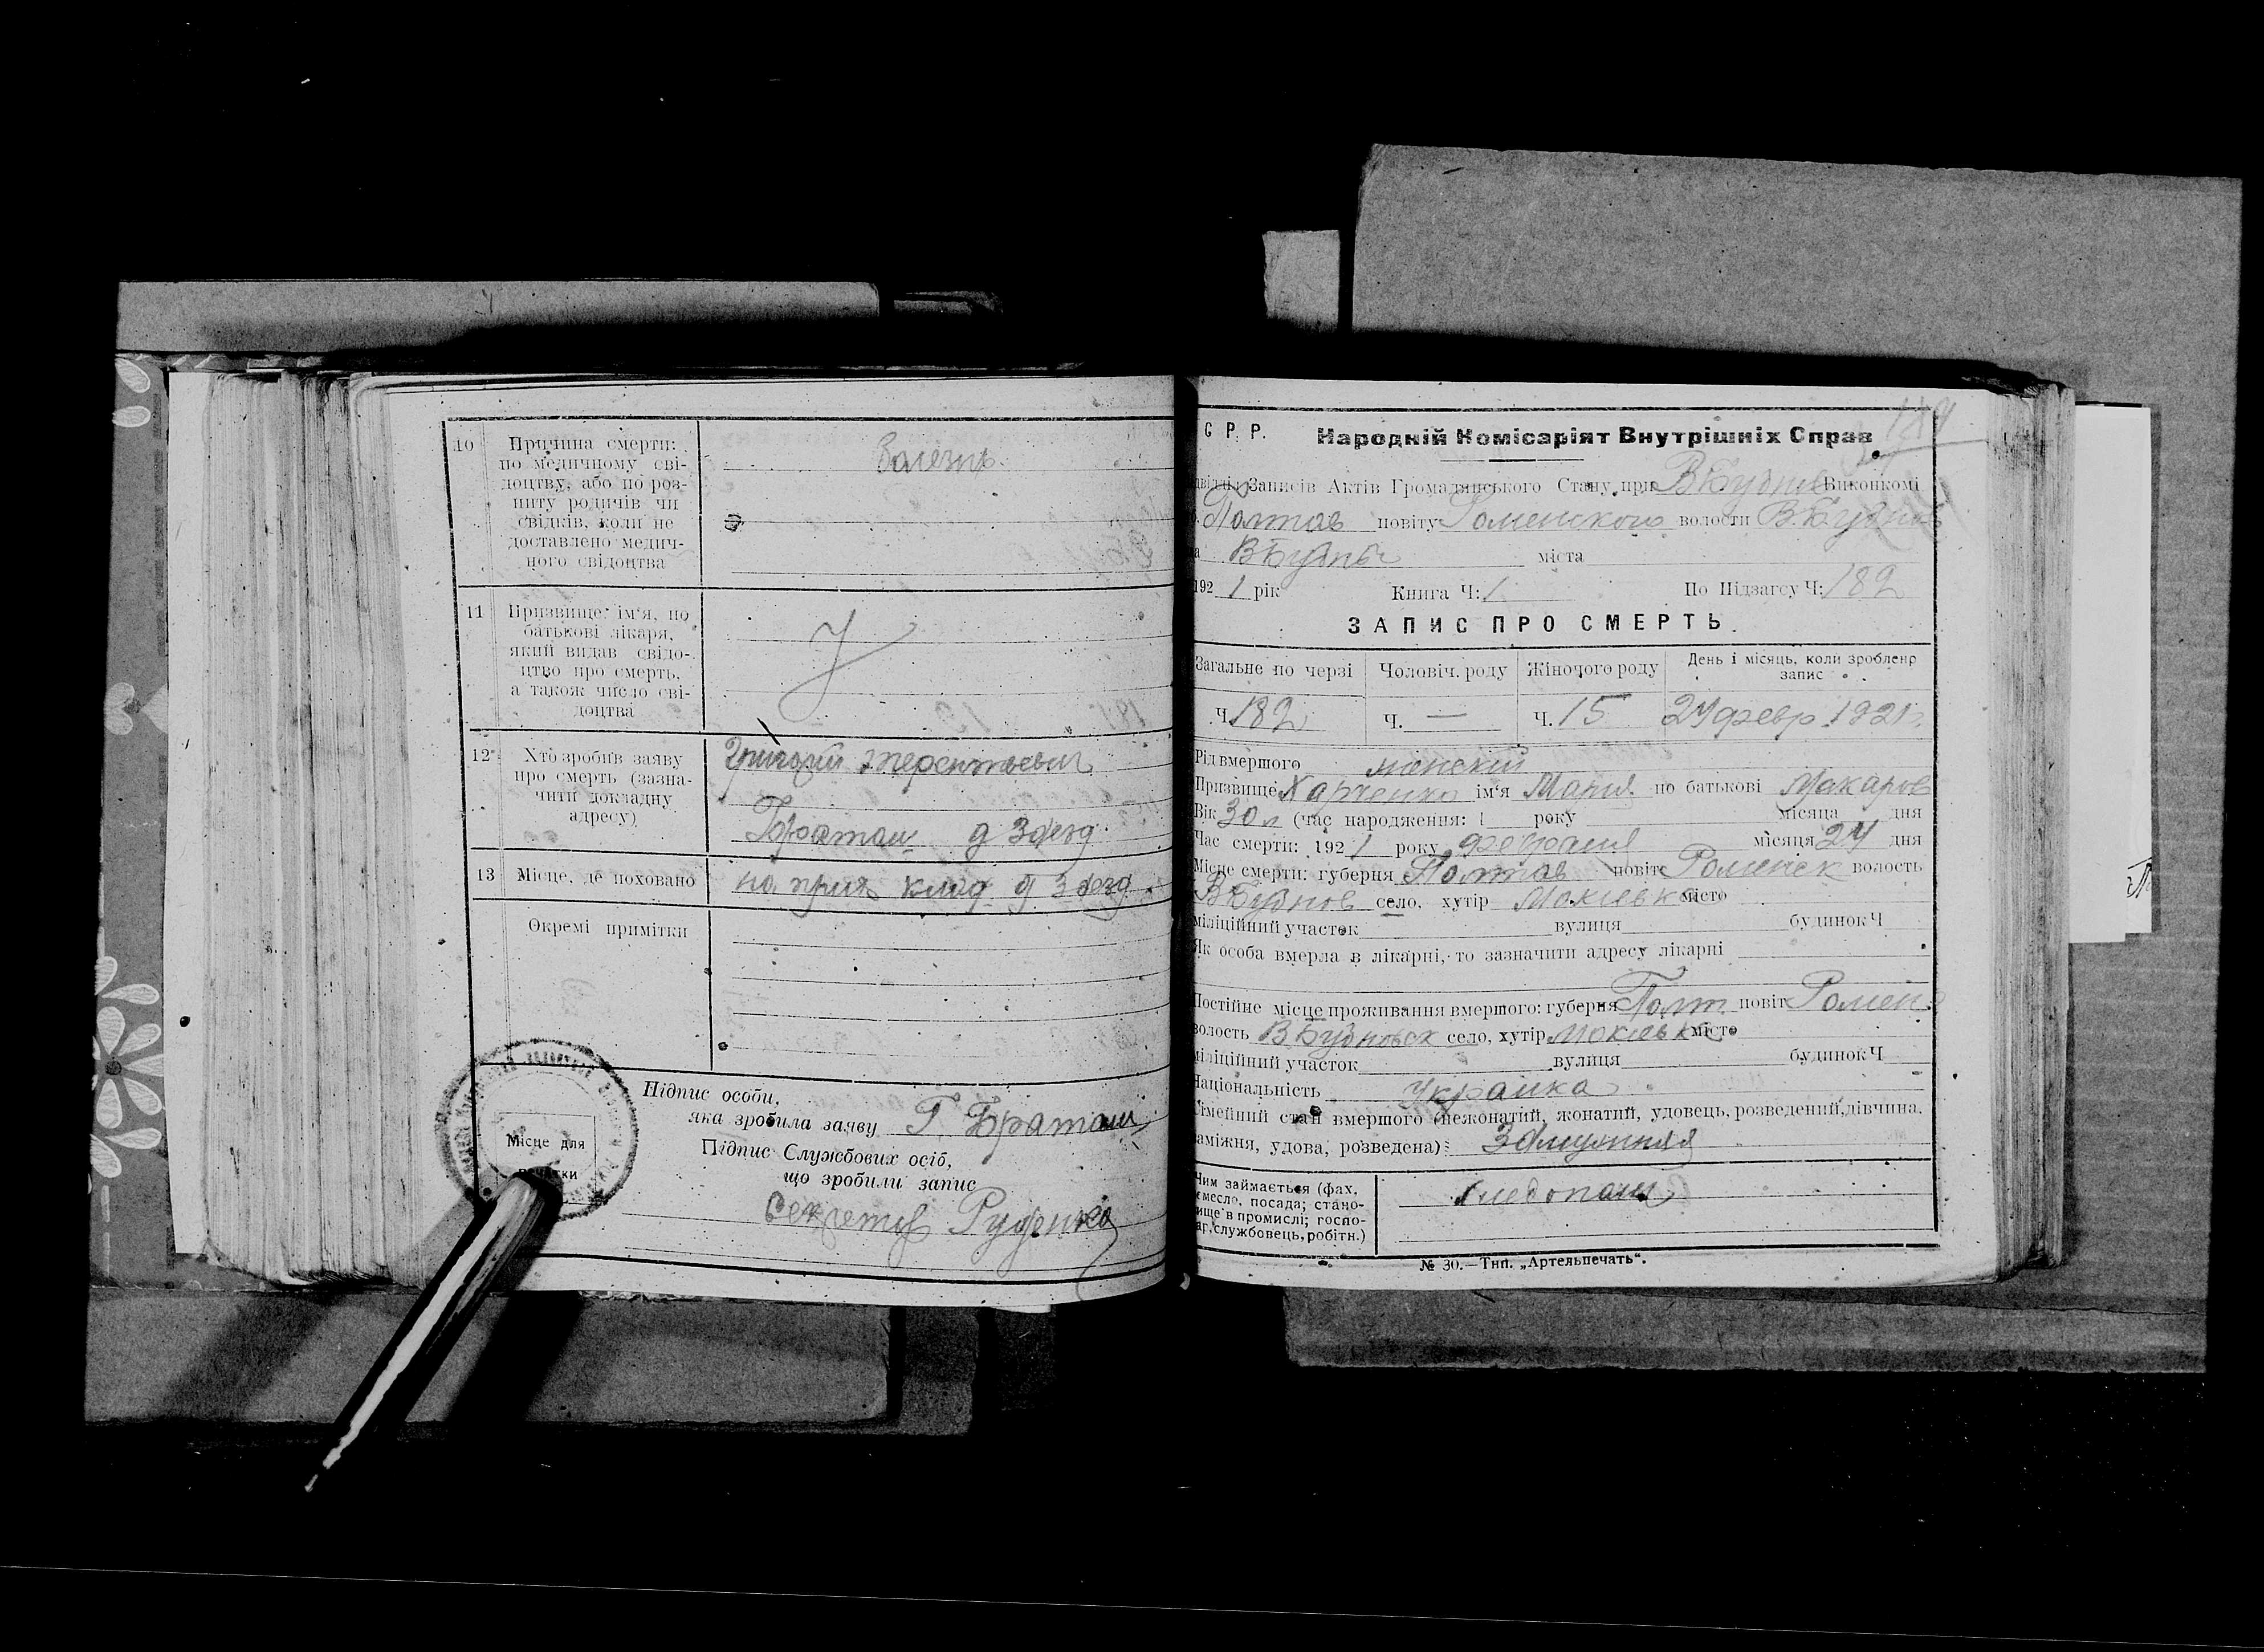 10 Причина смерти:
по медичному сві-
доцтву, або по роз-
питу родичів чи
свідків, коли не
доставлено медич-
ного свідоцтва
Болезнь.
11 Призвище, ім'я, по
батькові лікаря,
який видав свідо-
цтво про смерть,
а також число сві-
доцтва
12 Хто зробив заяву
про смерть (зазна-
чити докладну
адресу)
Григорий Терентьевич
Браташ д
13 Місце, де поховано
на прих клад д
Окремі примітки
Місце для
Підпис особи,
яка зробила заяву Г. Браташ
Підпис Службових осіб,
що зробили запис
Секретар Руденко
189
С Р. Р. Народній Комісаріят Внутрішніх Справ
Записів Актів Громадянського Стану при В Бубнів Виконкомі
Полтав повіту Роменского волости В. Бубнов
В Бубны міста
192 1 рік Книга Ч: 1 По Підзагсу Ч: 182
ЗАПИС ПРО СМЕРТЬ.
Загальне по черзі Чоловіч. роду Жіночого роду День і місяць, коли зроблено
запис
Ч. 182 Ч. — Ч. 15 24 февр. 1921 г.
Рід вмершого женский
Призвище Харченко ім'я Мария по батькові Макаров
Вік 30 л (час народження: 1 року місяца дня
Час смерти: 192 1 року февраля місяця 24 дня
Місце смерти: губерня Полтав повіт Роменск волость
В Бубнов село, хутір Мокіевка місто
міліційний участок вулиця будинок Ч
Як особа вмерла в лікарні, то зазначити адресу лікарні
Постійне місце проживання вмершого: губерня Полт повіт Ромен
волость В Бубновск село, хутір Мокіевка місто
міліційний участок вулиця будинок Ч
Національність Украинка
Сімейний стан вмершого (нежонатий, жонатий, удовець, розведений, дівчина.
заміжня, удова, розведена): Замужняя
Чим займається (фах,
ремесло, посада; стано-
вище в промислі; госпо-
дар, службовець, робітн.)
Хлебопаш
№ 30.—Тип. „Артельпечать".